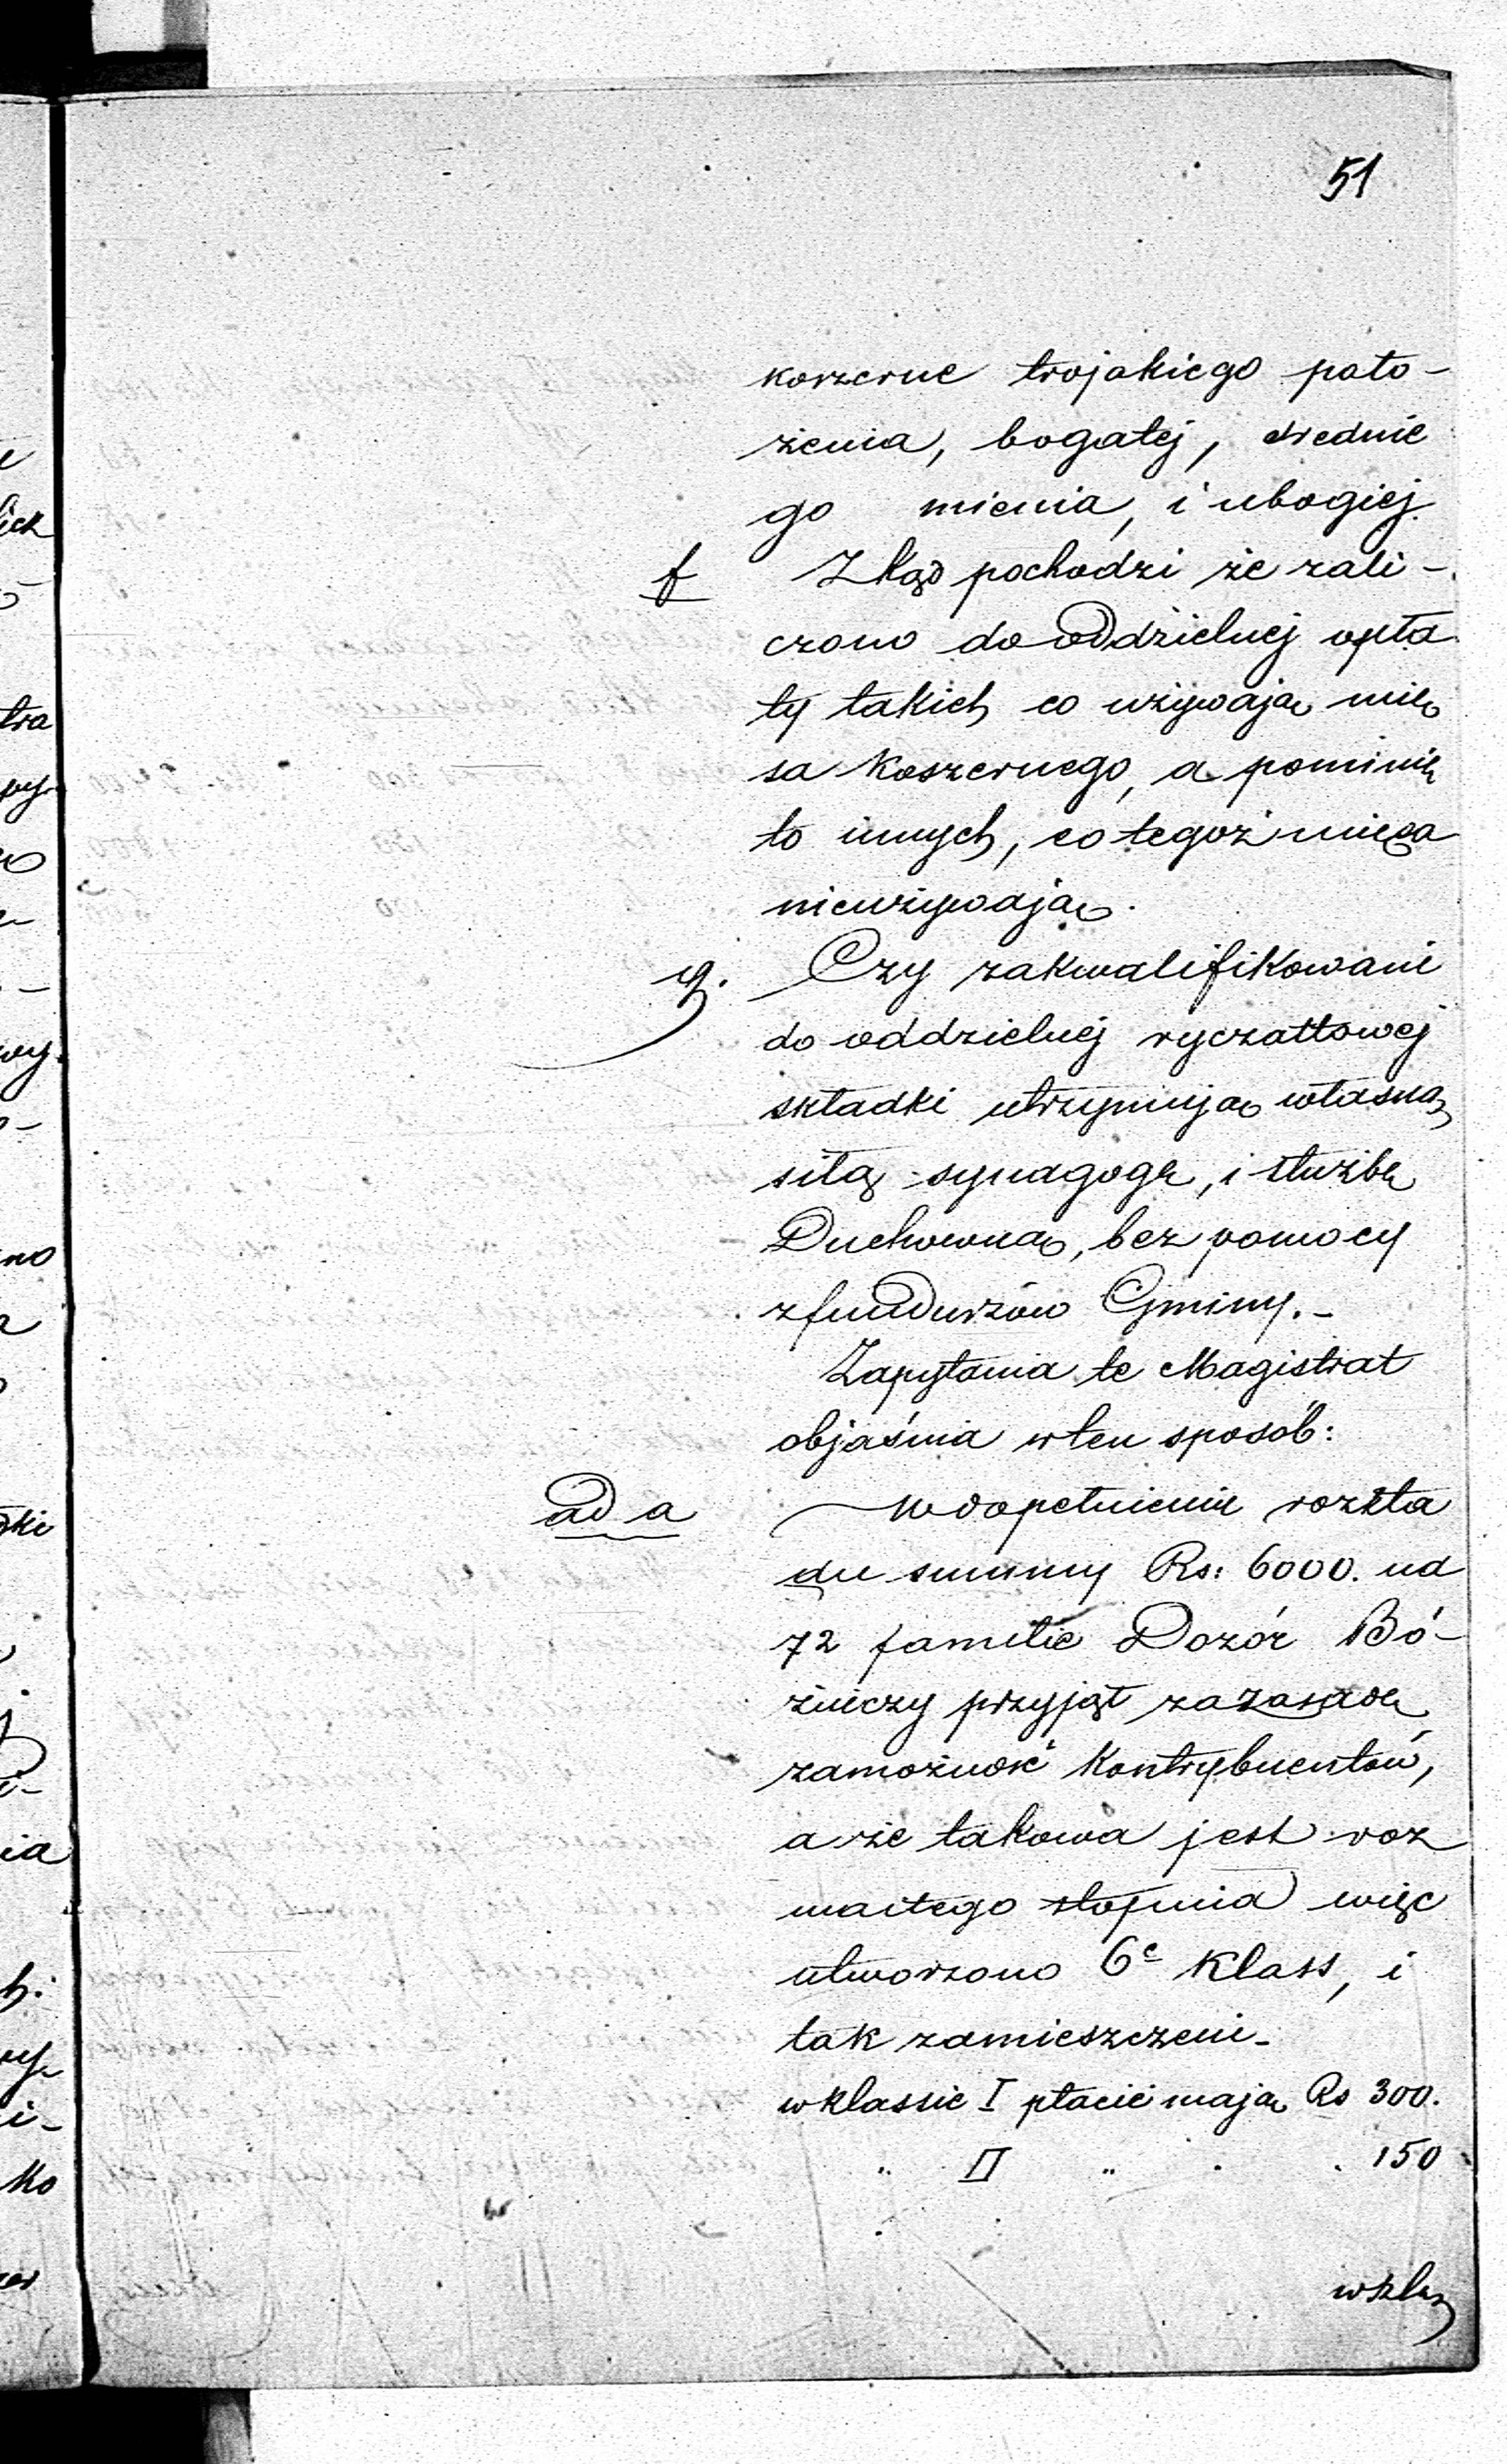 51
korzerne trojakiego poło-
żenia, bogatej, srednie
go mienia, i ubogiej.
f Zkąd pochodzi że zali-
czono do oddzielnej opła
ty takich co używają mię
sa koszernego, a pominię
to innych, co tegoż mięsa
nieużywają.
g. Czy zakwalifikowani
do oddzielnej ryczałtowej
składki utrzymują własną
siłą synagogę, i służbę
Duchowną, bez pomocy
zfunduszów Gminy.-
Zapytania te Magistrat
objaśnia wten sposób:
ad a W dopełnieniu rozkła
du summy Rs: 6000. na
72 familie Dozór Bó-
żniczy przyjął za zasadę
zamożność kontrybuentów,
a że takowa jest roz
maitego stopnia więc
utworzono 6ć klass, i
tak zamieszczeni-
wklassie I płacić mają Rs 300.
" II " . . 150
wklas